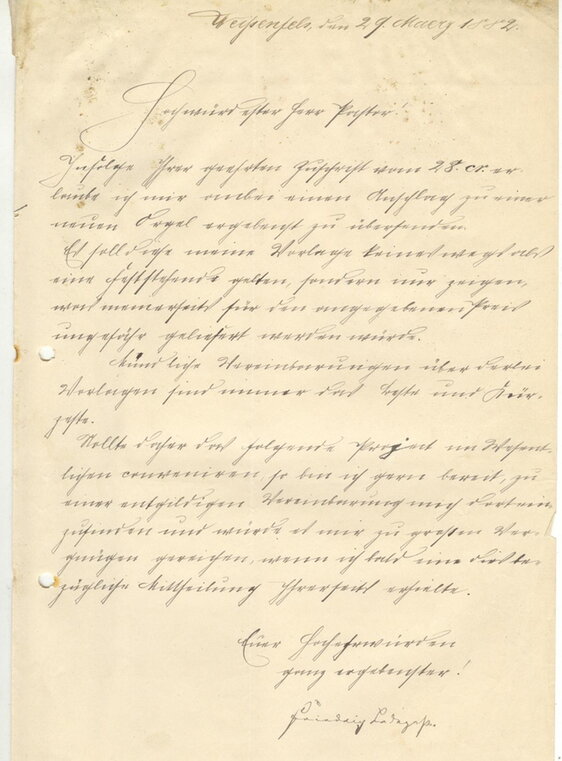 Weißenfels, den 29. Maerz 1882.
Hochwürdester Herr Pastor!
Infolge Ihrer geehrten Zuschrift vom 28. cr. er-
laube ich mir anbei einen Anschlag zu einer
neuen Orgel ergebenst zu übersenden.
Es soll diese meine Vorlage keineswegs als
eine feststehende gelten, sondern nur zeigen,
was meinerseits für den angegebenen Preis
ungefähr geliefert werden würde.
Mündliche Vereinbarungen über derlei
Vorlagen sind immer das Beste und Kür-
zeste.
Sollte daher das folgende Project im Wesent-
lichen conveniren, so bin ich gern bereit, zu
einer entgildigen Vereinbarung mich dort ein-
zufinden und würde es mir zu großen Ver-
gnügen gereichen, wenn ich bald eine diesbe-
zügliche Mittheilung Ihrerseits erhielte.
Euer Hochehrwürden
ganz ergebenster!
Friedrich Ladegast.